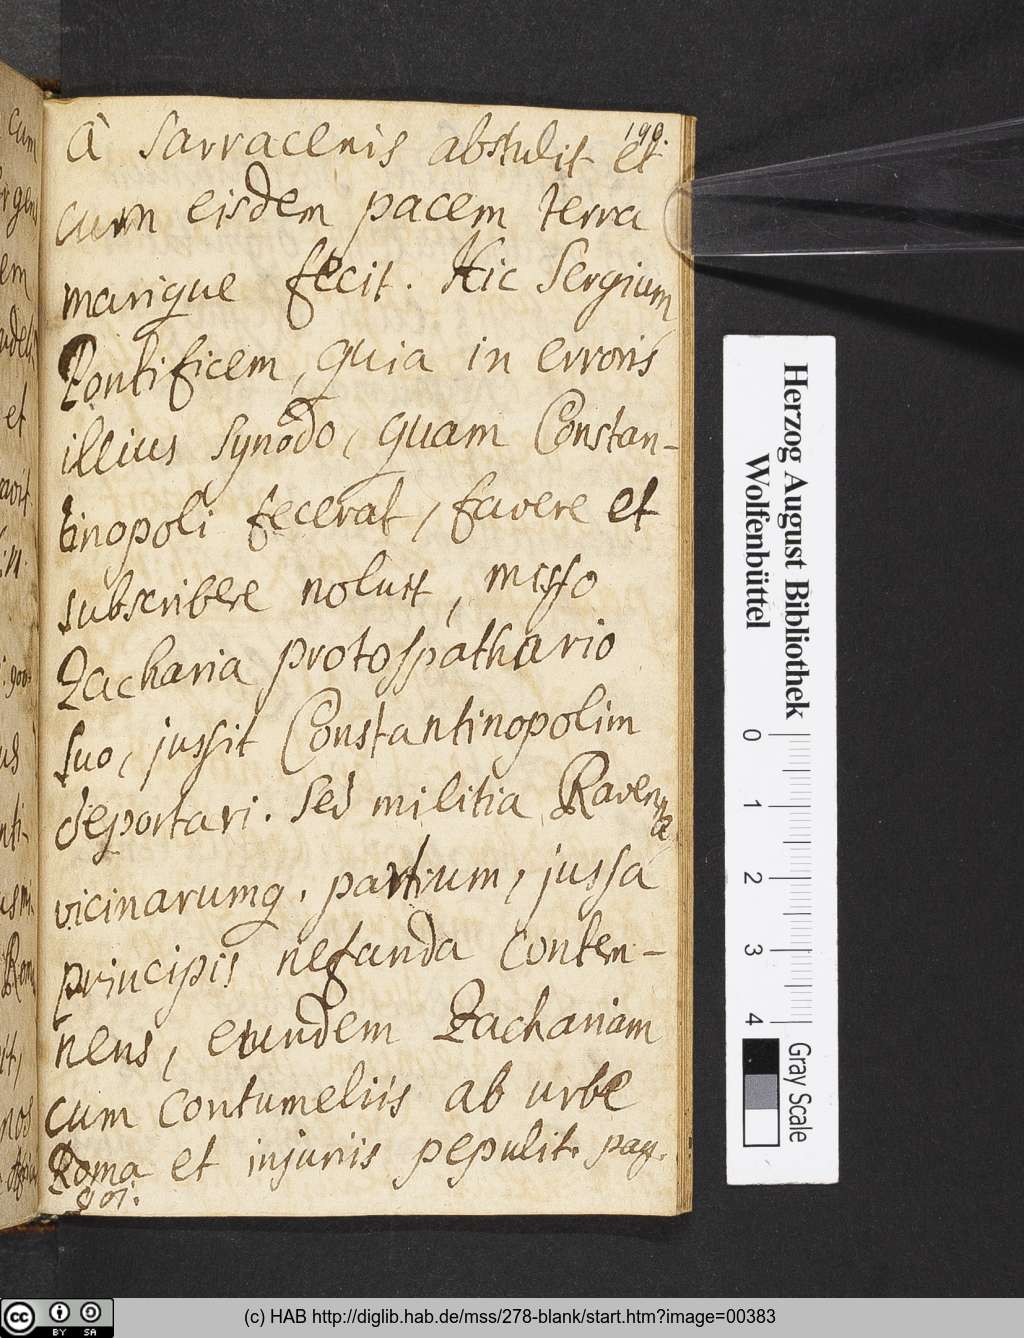 190.
à Sarracenis abstulit et
cum eisdem pacem terra
marique fecit. Hic Sergium
Pontificem, quia in erroris
illius Synodo, quam Constan-
tinopoli fecerat, favere et
subscribere noluit, misso
Zacharia protospathario
suo, jussit Constantinopolim
deportari. Sed militia Ravennæ
vicinarumq. partium, jussa
principis nefanda contem-
nens, eundem Zachariam
cum contumeliis ab urbe
Roma et injuriis pepulit. pag.
901.
cum
em
et
in.
Herzog August Bibliothek
Wolfenbüttel
0 1 2 3 4
Gray Scale
cc BY SA
(c) HAB http://diglib.hab.de/mss/278-blank/start.htm?image=00383